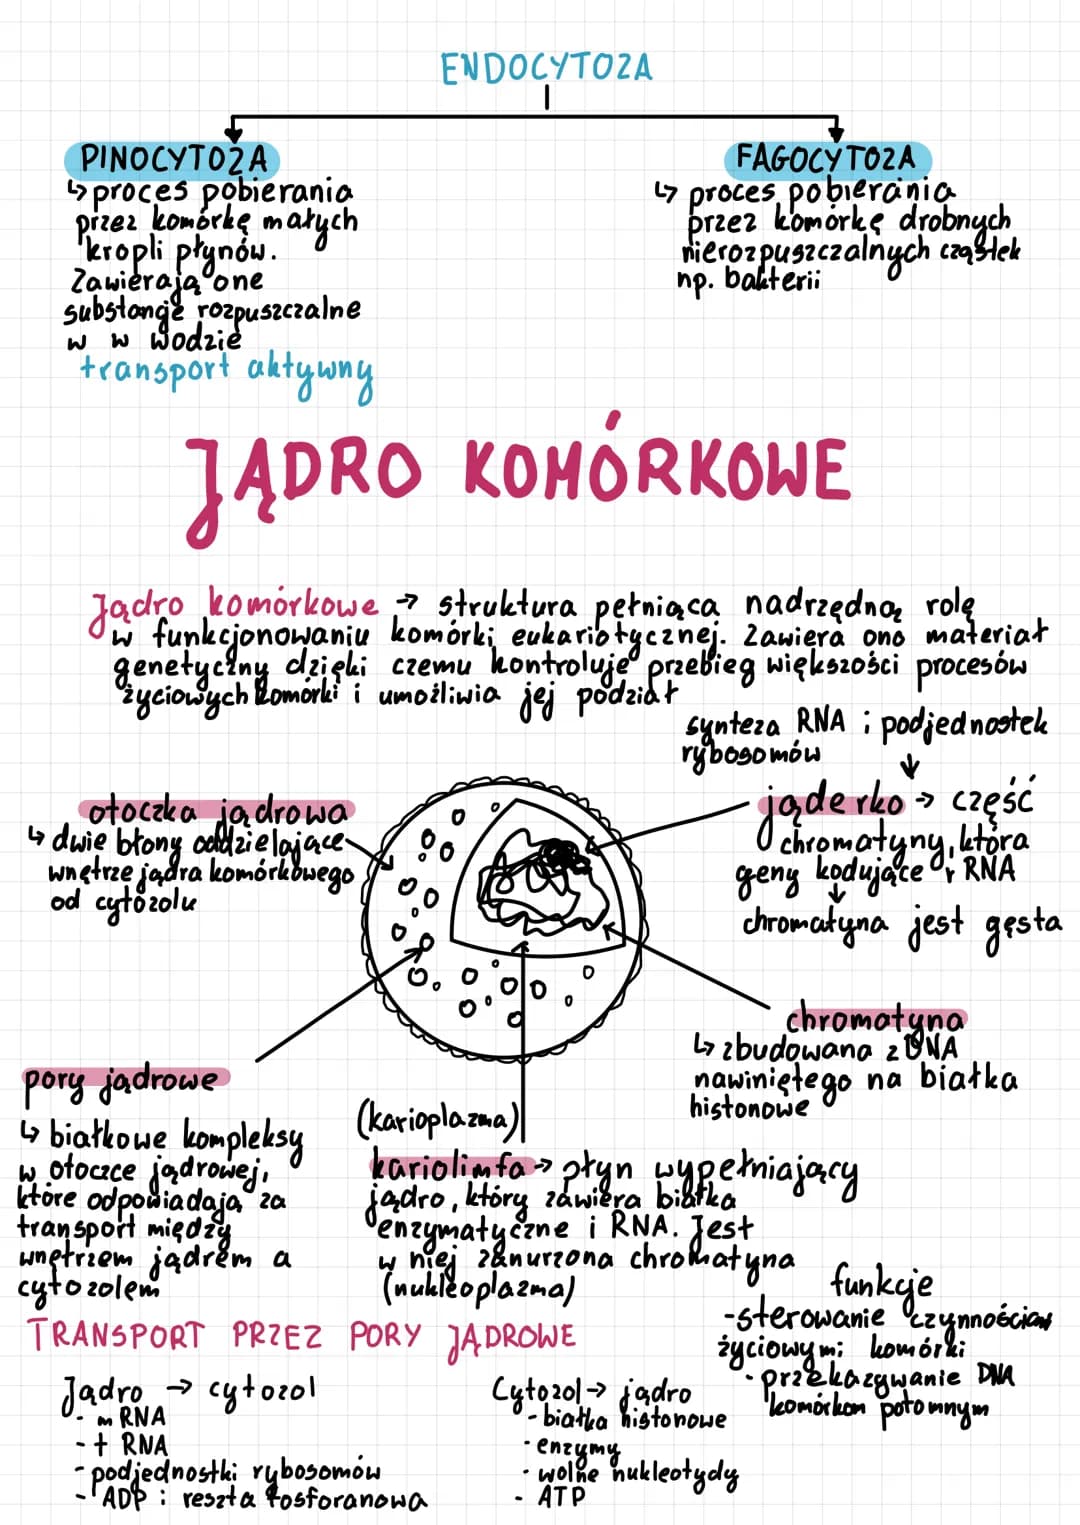 ENDOCYTOZA
PINOCYTOZA
↳ proces pobierania
przez komórkę małych
kropli płynów.
Zawierają one
substancje rozpuszczalne
w w wodzie
transport aktywny
FAGOCYTOZA
↳ proces pobierania
przez komórkę drobnych
nierozpuszczalnych cząstek
np. bakterii
JĄDRO KOMÓRKOWE
Jądro komórkowe → struktura pełniąca nadrzędną rolę
w funkcjonowaniu komórki eukariotycznej. Zawiera ono materiał
genetyczny dzięki czemu kontroluje przebieg większości procesów
życiowych komórki i umożliwia jej podział
synteza RNA i podjednostek
rybosomów
otoczka jądrowa
↳ dwie błony oddzielające
wnętrze jądra komórkowego
od cytozolu
jąderko → część
chromatyny, która
geny kodujące r RNA
chromatyna jest gęsta
chromatyna
↳ zbudowana z DNA
nawiniętego na białka
histonowe
pory jądrowe
↳ białkowe kompleksy
w otoczce jądrowej,
które odpowiadają za
transport między
wnętrzem jądrem a
cytozolem
(karioplazma)
kariolimfa → płyn wypełniający
jądro, który zawiera białka
enzymatyczne i RNA. Jest
w niej zanurzona chromatyna
(nukleoplazma)
funkcje
-sterowanie czynnościami
życiowymi komórki
- przekazywanie DNA
komórkom potomnym
TRANSPORT PRZEZ PORY JĄDROWE
Jądro → cytozol
- mRNA
- t RNA
- podjednostki rybosomów
- ADP i reszta fosforanowa
Cytozol → jądro
- białka histonowe
- enzymy
- wolne nukleotydy
- ATP